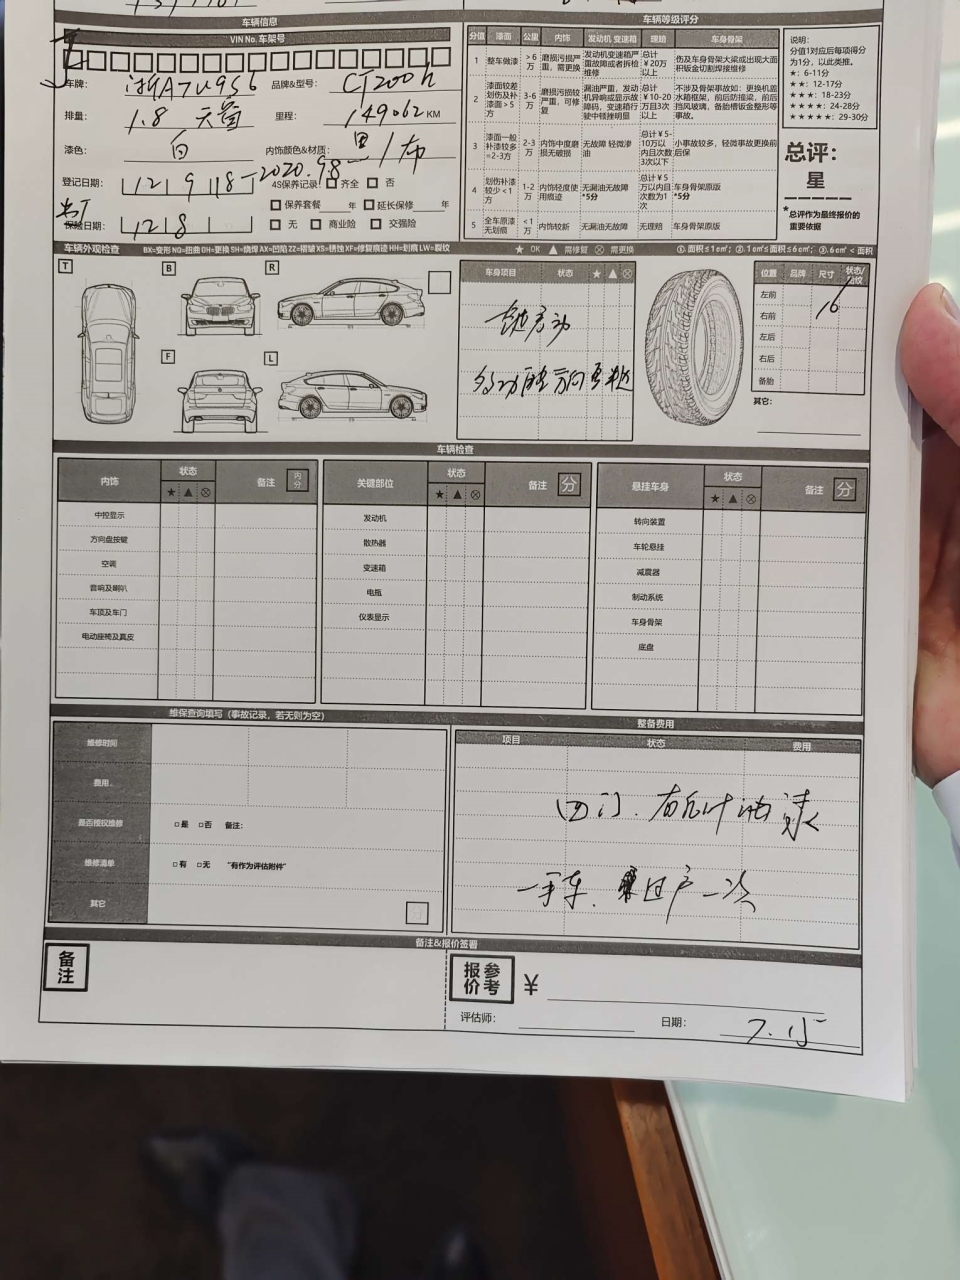 车辆信息
VIN No. 车架号
车牌: 浙A7U9S6 品牌&型号: CT200h
排量: 1.8 天窗 里程: 149062 KM
漆色: 白 内饰颜色&材质: 黑/布
登记日期: 12 9 18-2020.9.8 4S保养记录: 齐全 否
保养套餐 年 延长保修 年
保险日期: 12 8 无 商业险 交强险
车辆等级评分
分值 漆面 公里 内饰 发动机 变速箱 理赔 车身骨架
1 整车做漆 >6万 磨损污损严重,需更换 发动机变速箱严重故障或者拆检维修 总计¥20万以上 伤及车身骨架大梁或出现大面积钣金切割焊接维修
2 漆面较差 划伤及补漆面>5方 3-6万 磨损污损较严重,可修复 漏油严重,发动机异响或显示故障码,变速箱行驶中顿挫明显 总计¥10-20万且3次以上 不涉及骨架事故如:更换机盖水箱框架,前后防撞梁,前后挡风玻璃,备胎槽钣金整形等事故。
3 漆面一般 补漆较多=2-3方 2-3万 内饰中度磨损无破损 无故障 轻微渗油 总计¥5-10万以内且次数3次以下 小事故较多,轻微事故更换前后保
4 划伤补漆较少<1方 1-2万 内饰轻度使用痕迹 无漏油无故障*5分 总计¥5万以内且次数为1次 车身骨架原版*5分
5 全车原漆无划痕 <1万 内饰较新 无漏油无故障 无理赔 车身骨架原版
说明:
分值1对应后每项得分为1分,以此类推。
★: 6-11分
★★: 12-17分
★★★: 18-23分
★★★★: 24-28分
★★★★★: 29-30分
总评:
星
*总评作为最终报价的重要依据
车辆外观检查 BX=变形 NQ=扭曲 GH=更换 SH=烧焊 AX=凹陷 ZZ=褶皱 XS=锈蚀 XF=修复痕迹 HH=划痕 LW=裂纹 ★ OK ▲ 需修复 ⊗ 需更换 ①.面积≤1c㎡; ②.1c㎡≤面积≤6c㎡; ③.6c㎡<面积
T B R
F L
车身项目 状态 ★ ▲ ⊗
一键启动
位置 品牌 尺寸
左前
右前 16
左后
右后
备胎
其它:
车辆检查
内饰 状态 备注 内分
★ ▲ ⊗
中控显示
方向盘按键
空调
音响及喇叭
车顶及车门
电动座椅及真皮
关键部位 状态 备注 分
★ ▲ ⊗
发动机
散热器
变速箱
电瓶
仪表显示
悬挂车身 状态 备注 分
★ ▲ ⊗
转向装置
车轮悬挂
减震器
制动系统
车身骨架
底盘
维保查询填写(事故记录,若无则为空)
维修时间
费用
是否授权维修 □是 □否 备注:
维修清单 □有 □无 "有作为评估附件"
其它 分
整备费用
项目 状态 费用
四门.右后叶油漆
一手车. 过户一次
备注&报价签署
备注
参考报价 ¥
评估师: 日期: 7.15